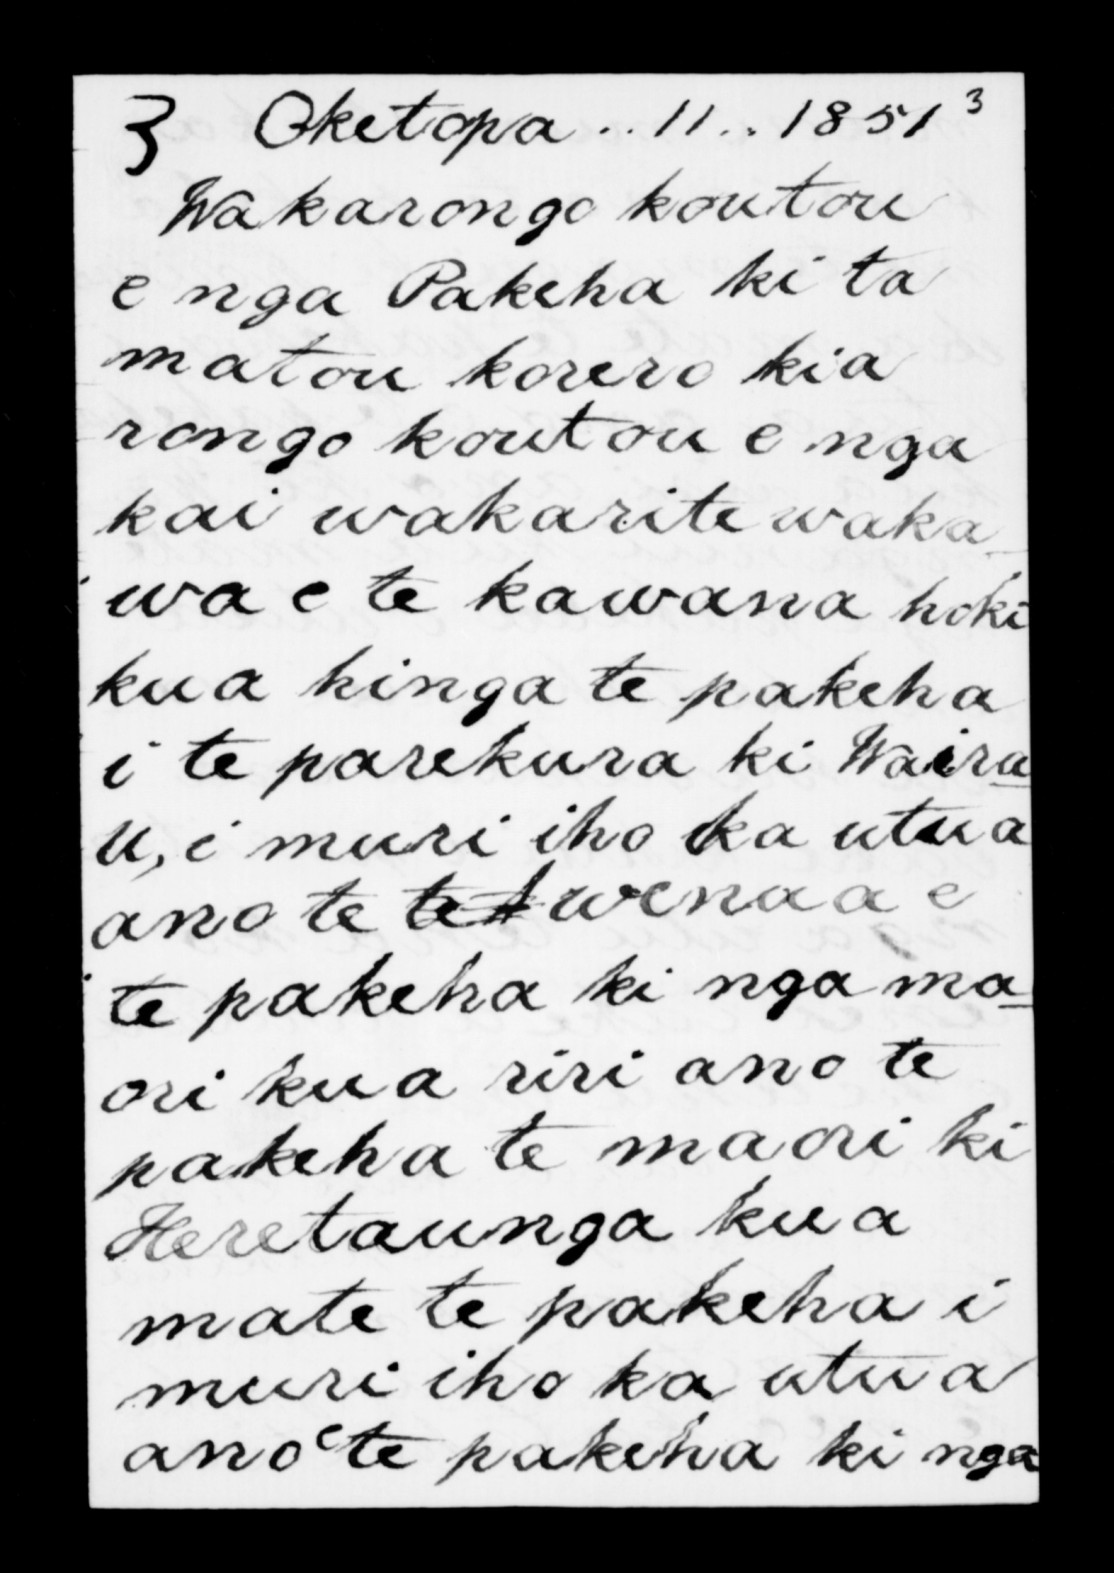 3 Oketopa .. 11 .. 1851 3
Wakarongo koutou
e nga Pakeha ki ta
matou korero kia
rongo koutou e nga
kai wakarite waka-
wa e te kawana hoki
kua hinga te pakeha
i te parekura ki Waira
u, i muri iho ka utua
ano te wenaa e
te pakeha ki nga ma-
ori kua riri ano te
pakeha te maori ki
Heretaunga kua
mate te pakeha i
muri iho ka utua
ano e te pakeha ki nga